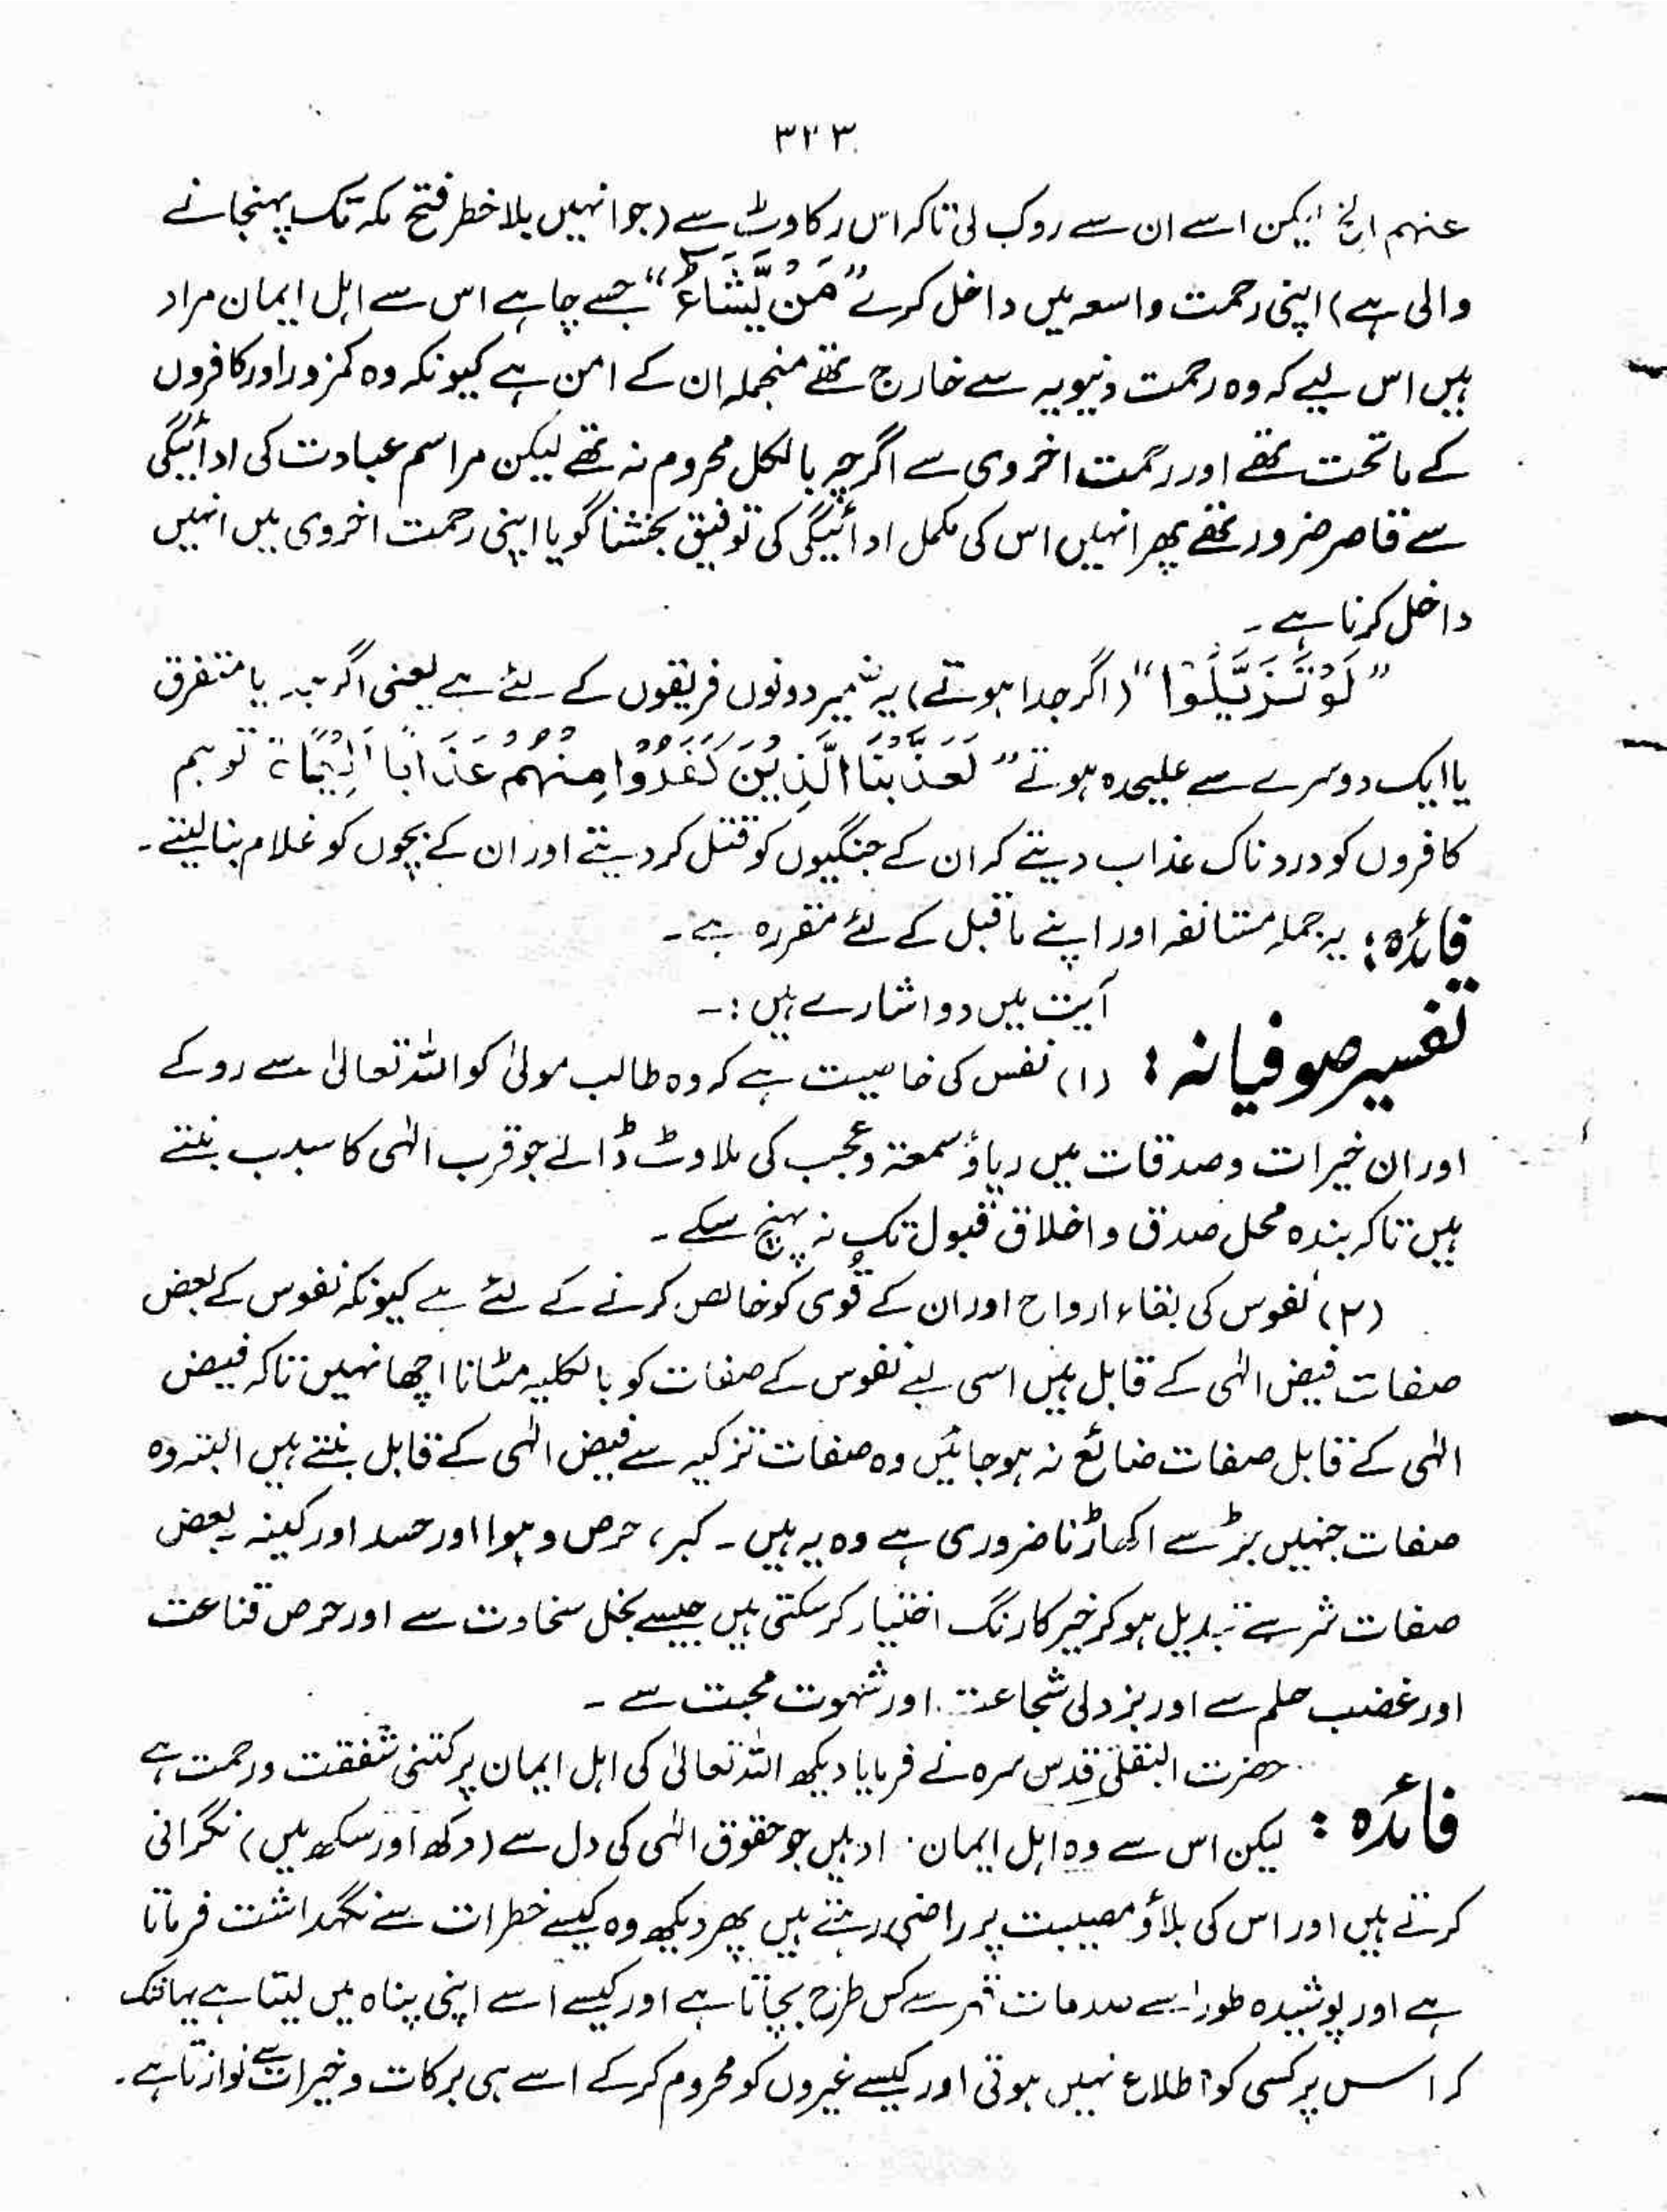 ۳۲۳
عنہم الخ لیکن اسے ان سے روک لی تاکہ اس رکاوٹ سے (جو انہیں بلا خطر فتح مکہ تک پہنچانے
والی ہے) اپنی رحمت واسعہ میں داخل کرے ”مَنْ یَّشَآءُ“ جسے چاہے اس سے اہل ایمان مراد
ہیں اس لیے کہ وہ رحمت دنیویہ سے خارج تھے منجملہ ان کے امن ہے کیونکہ وہ کمزور اور کافروں
کے ماتحت تھے اور رحمت اخروی سے اگرچہ بالکل محروم نہ تھے لیکن مراسم عبادت کی ادائیگی
سے قاصر ضرور تھے پھر انہیں اس کی مکمل ادائیگی کی توفیق بخشنا گویا اپنی رحمت اخروی میں انہیں
داخل کرنا ہے ۔
”لَوْ تَزَیَّلُوْا“ (اگر جدا ہوتے) یہ ضمیر دونوں فریقوں کے لئے ہے یعنی اگر یہ یا متفرق
یا ایک دوسرے سے علیحدہ ہوتے ”لَعَذَّبْنَا الَّذِیْنَ کَفَرُوْا مِنْہُمْ عَذَابًا اَلِیْمًا ۃ تو ہم
کافروں کو دردناک عذاب دیتے کہ ان کے جنگیوں کو قتل کر دیتے اور ان کے بچوں کو غلام بنا لیتے ۔
فائدہ : یہ جملہ مستانفہ اور اپنے ماقبل کے لئے مقررہ ہے ۔
آیت میں دو اشارے ہیں :۔
تفسیر صوفیانہ : (۱) نفس کی خاصیت ہے کہ وہ طالب مولیٰ کو اللہ تعالیٰ سے روکے
اور ان خیرات و صدقات میں ریاؤ سمعۃ و عجب کی ملاوٹ ڈالے جو قرب الٰہی کا سبب بنتے
ہیں تاکہ بندہ محل صدق و اخلاق قبول تک نہ پہنچ سکے ۔
(۲) نفوس کی بقاء ارواح اور ان کے قُوی کو خالص کرنے کے لئے ہے کیونکہ نفوس کے بعض
صفات فیض الٰہی کے قابل ہیں اسی لیے نفوس کے صفات کو بالکلیہ مٹانا اچھا نہیں تاکہ فیض
الٰہی کے قابل صفات ضائع نہ ہو جائیں وہ صفات تزکیہ سے فیض الٰہی کے قابل بنتے ہیں البتہ وہ
صفات جنہیں جڑ سے اکھاڑنا ضروری ہے وہ یہ ہیں ۔ کبر ، حرص و ہوا اور حسد اور کینہ بعض
صفات شر سے تبدیل ہو کر خیر کا رنگ اختیار کر سکتی ہیں جیسے بخل سخاوت سے اور حرص قناعت
اور غضب حلم سے اور بزدلی شجاعت اور شہوت محبت سے ۔
حضرت البقلی قدس سرہ نے فرمایا دیکھ اللہ تعالیٰ کی اہل ایمان پر کتنی شفقت و رحمت ہے
فائدہ : لیکن اس سے وہ اہل ایمان ادہیں جو حقوق الٰہی کی دل سے (دکھ اور سکھ میں) نگرانی
کرتے ہیں اور اس کی بلاؤ مصیبت پر راضی رہتے ہیں پھر دیکھ وہ کیسے خطرات سے نگہداشت فرماتا
ہے اور پوشیدہ طور اسے صدمات قہر سے کس طرح بچاتا ہے اور کیسے اسے اپنی پناہ میں لیتا ہے یہانتک
کہ اس پر کسی کو اطلاع نہیں ہوتی اور کیسے غیروں کو محروم کرکے اسے ہی برکات و خیرات سے نوازتا ہے ۔